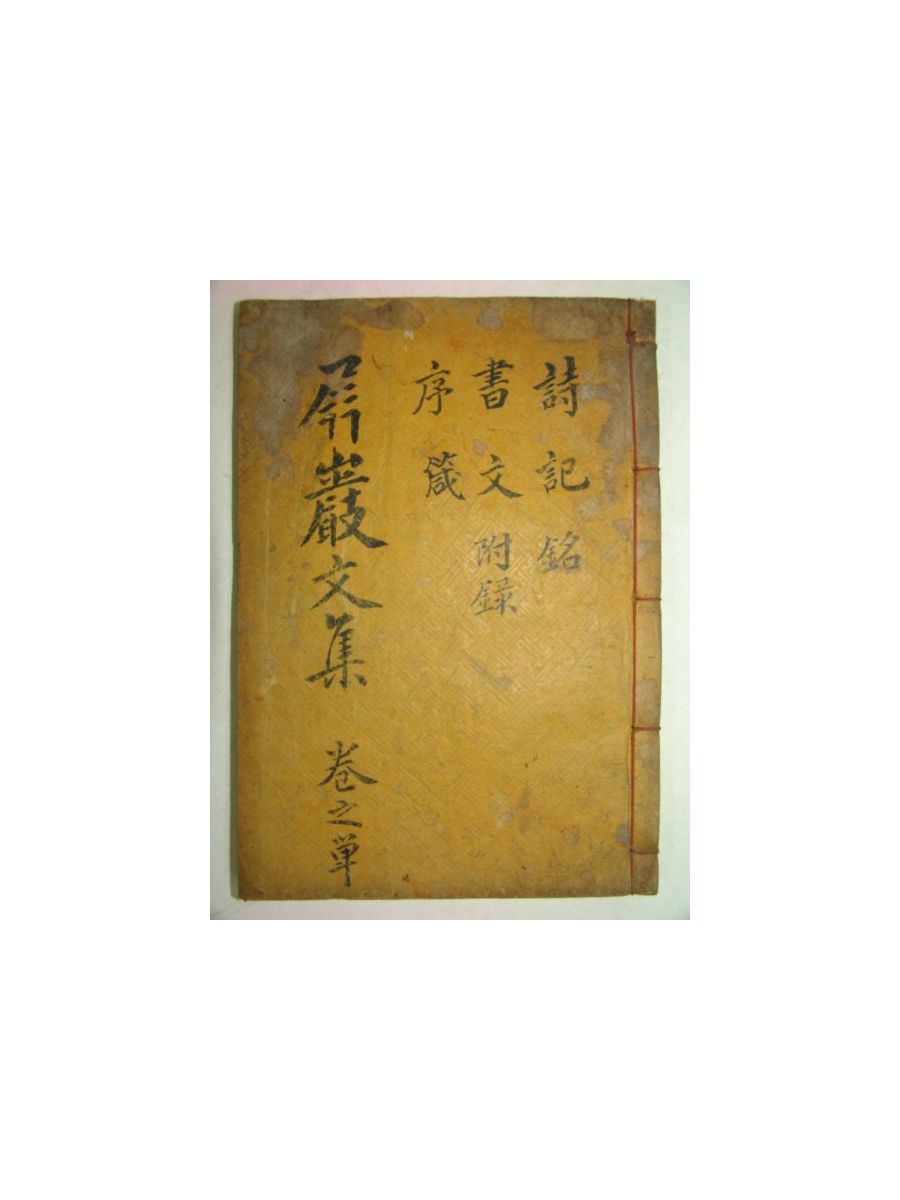 詩 記 銘
書 文 附錄
序 箴
屛巖文集 卷之単